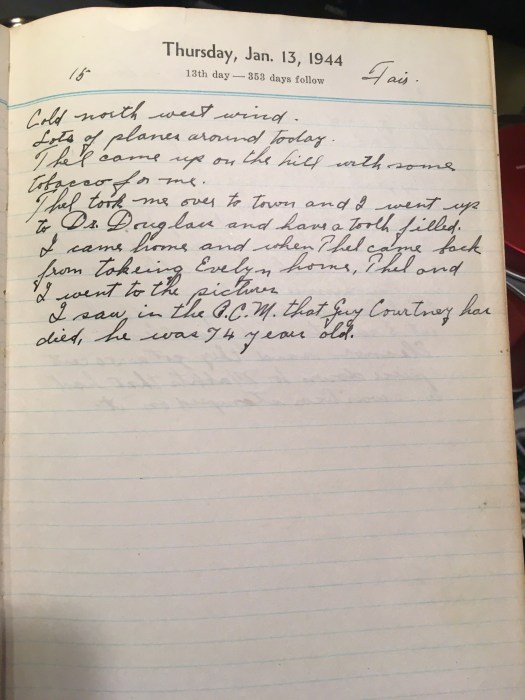 Thursday, Jan. 13, 1944
15 13th day — 353 days follow Fair.
Cold north west wind.
Lots of planes around today.
Thel came up on the hill with some
tobacco for me.
Thel took me over to town and I went up
to Dr. Douglass and have a tooth filled.
I came home and when Thel came back
from takeing Evelyn home, Thel and
I went to the pictures
I saw in the B.C.M. that Guy Courtney has
died, he was 74 year old.